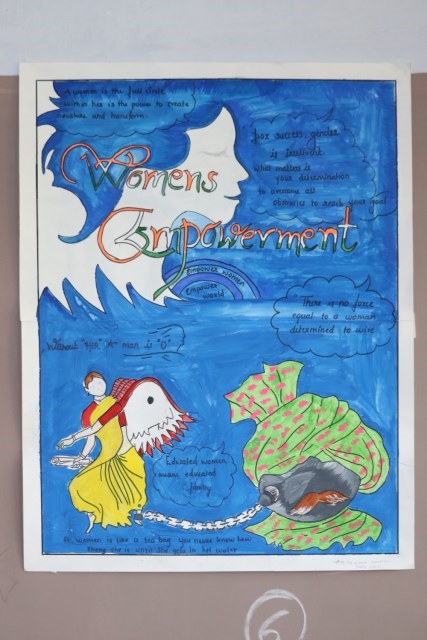 A woman is the full circle
within her is the power to create
nurture and transform.
For success, gender
is irrelivent
what matters is
your determination
to overcome all
obstacles to reach your goal
Womens
Empowerment
empower women
empower
world
There is no force
equal to a woman
determined to wise
Without "HER" "A" man is "O"
Educated women
means educated
family
A woman is like a tea bag you never know how
strong she is until she gets in hot water
6